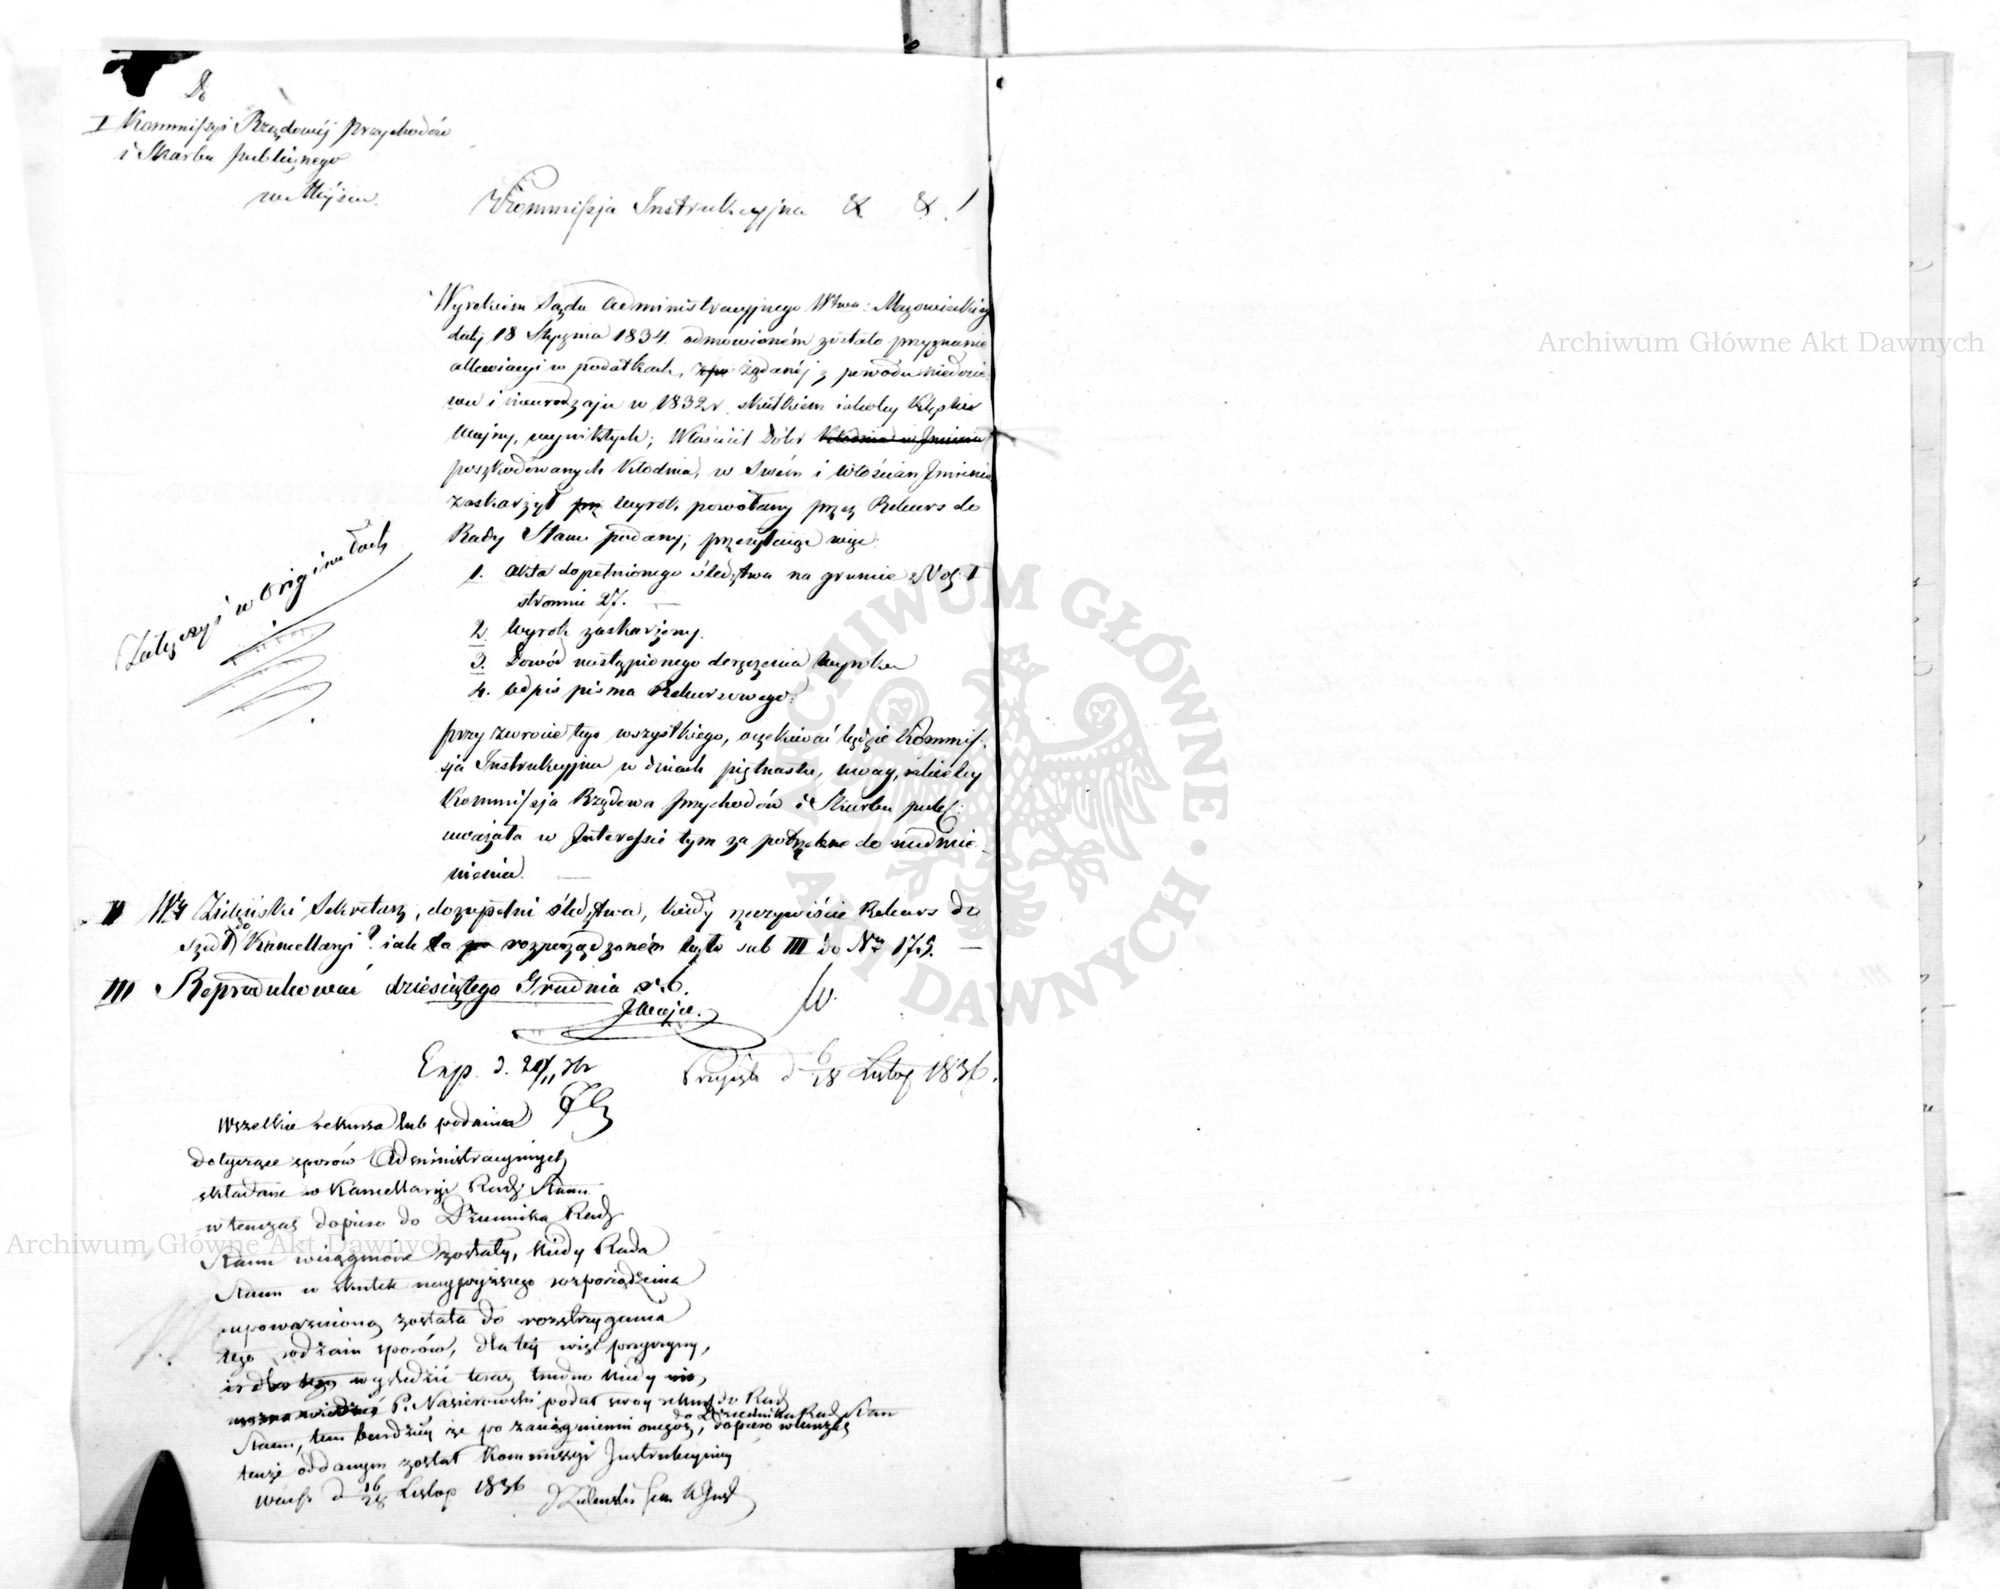 Do
I Kommissyi Rządowéj Przychodów
i Skarbu publicznego
w Miejscu.
Kommissja Instrukcyjna & &
Wyrokiem Sądu Administracyjnego Wtwa Mazowieckiego
daty 18 Stycznia 1834 odmówioném zostało przyznanie
allewiacyi w podatkach, żądanéj z powodu niedosie-
wu i nieurodzaju w 1832 r. skutkiem klęsk
wojny, wynikłych; Właściciel Dóbr Kłodnia w Imieniu
poszkodowanych Kłodnia, w Swém i Włościan Imieniu
zaskarżył wyrok powołany przez Rekurs do
Rady Stanu podany; przesyłając więc
1. Akta dopełnionego śledztwa na gruncie Vol. I
stronnic 27.
2. Wyrok zaskarżony.
3. Dowód nastąpionego doręczenia wyroku
4. Odpis pisma Rekursowego.
Załączyć w Originałach
przy zwrocie tego wszystkiego, oczekiwać będzie Kommis-
sja Instrukcyjna w dniach piętnastu, uwag, jakieby
Kommissja Rządowa Przychodów i Skarbu publ:
uważała w Interessie tym za potrzebne do nadmie-
nienia.
II Wy Zieliński Sekretarz, dozupełni śledztwa, kiedy rzeczywiście Rekurs do
szedł do Kancellaryi? iak to rozporządzoném było sub III do Nru 175.
III Reprodukować dziesiątego Grudnia r. b.
Exp. d. 28/11 36
Przyszło d 6/18 Listop 1836.
Wszelkie rekursa lub podania
dotyczące sporów Administracyjnych
składane w Kancellaryi Rady Stanu
wtenczas dopiero do Dziennika Rady
Stanu wciągnione zostały, kiedy Rada
Stanu w skutek najwyższego rozporządzenia
upoważnioną została do rozstrzygania
tego rodzaju sporów, dla téj więc przyczyny,
wyśledzić teraz trudno kiedy
P. Nasierowski podał swoy rekurs do Rady
Stanu, tem bardziéj że po zaciągnieniu onegoż, do Dziennika Rady Stanu dopiero wtenczas
tenże oddanym został Kommissyi Instrukcyjnéj
Warsz d 16/28 Listop 1836
Archiwum Główne Akt Dawnych
Archiwum Główne Akt Dawnych
ARCHIWUM GŁÓWNE AKT DAWNYCH